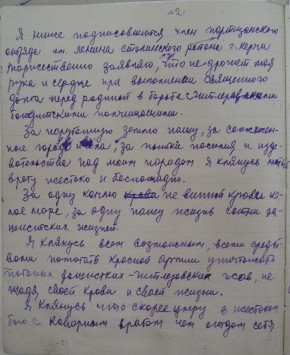 №2
Я ниже подписавшийся член партизанского
отряда им. Ленина Сталинского района г. Керчи
торжественно заявляю, что не дрогнет моя
рука и сердце при выполнении священного
долга перед родиной в борьбе с гитлеровскими
бандитскими полчищами.
За поруганную землю нашу, за сожжен-
ные города и сёла, за пытки насилия и изде-
вательства над моим народом я клянусь мстить
врагу жестоко и беспощадно.
За одну каплю крови не винной крови
море, за одну нашу жизнь сотни фа-
шистских жизней.
Я клянусь всем возможным, всеми средст-
вами помогать красной армии уничтожать
гитлеровских псов, не
щадя своей крови и своей жизни.
Я клянусь что скорее умру в жестоком
бою с коварным врагом чем отдам себя